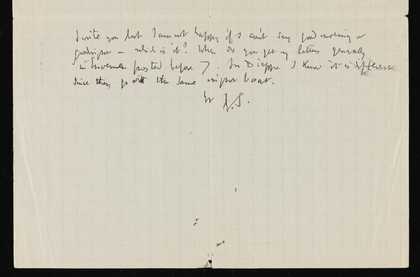 write you but I am not happy if I can't say good morning or
goodnight — which is it? When do you get my letters generally
in posted before 7. In Dieppe I know it is difference
since they go with the same night boat.
W. S.